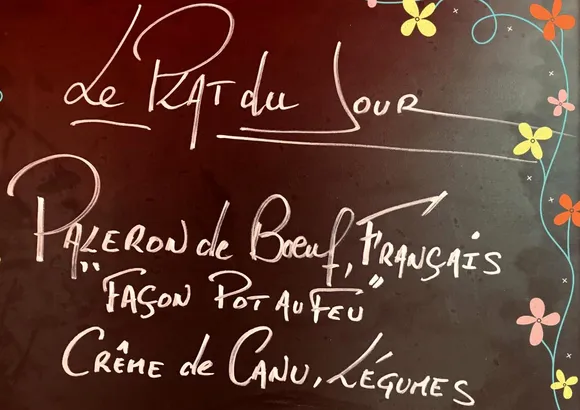 Le PLAT du JOUR
PALERON de Bœuf, FRANÇAIS
"FAÇON POT AU FEU"
CRÊME de CANU, LÉGUMES